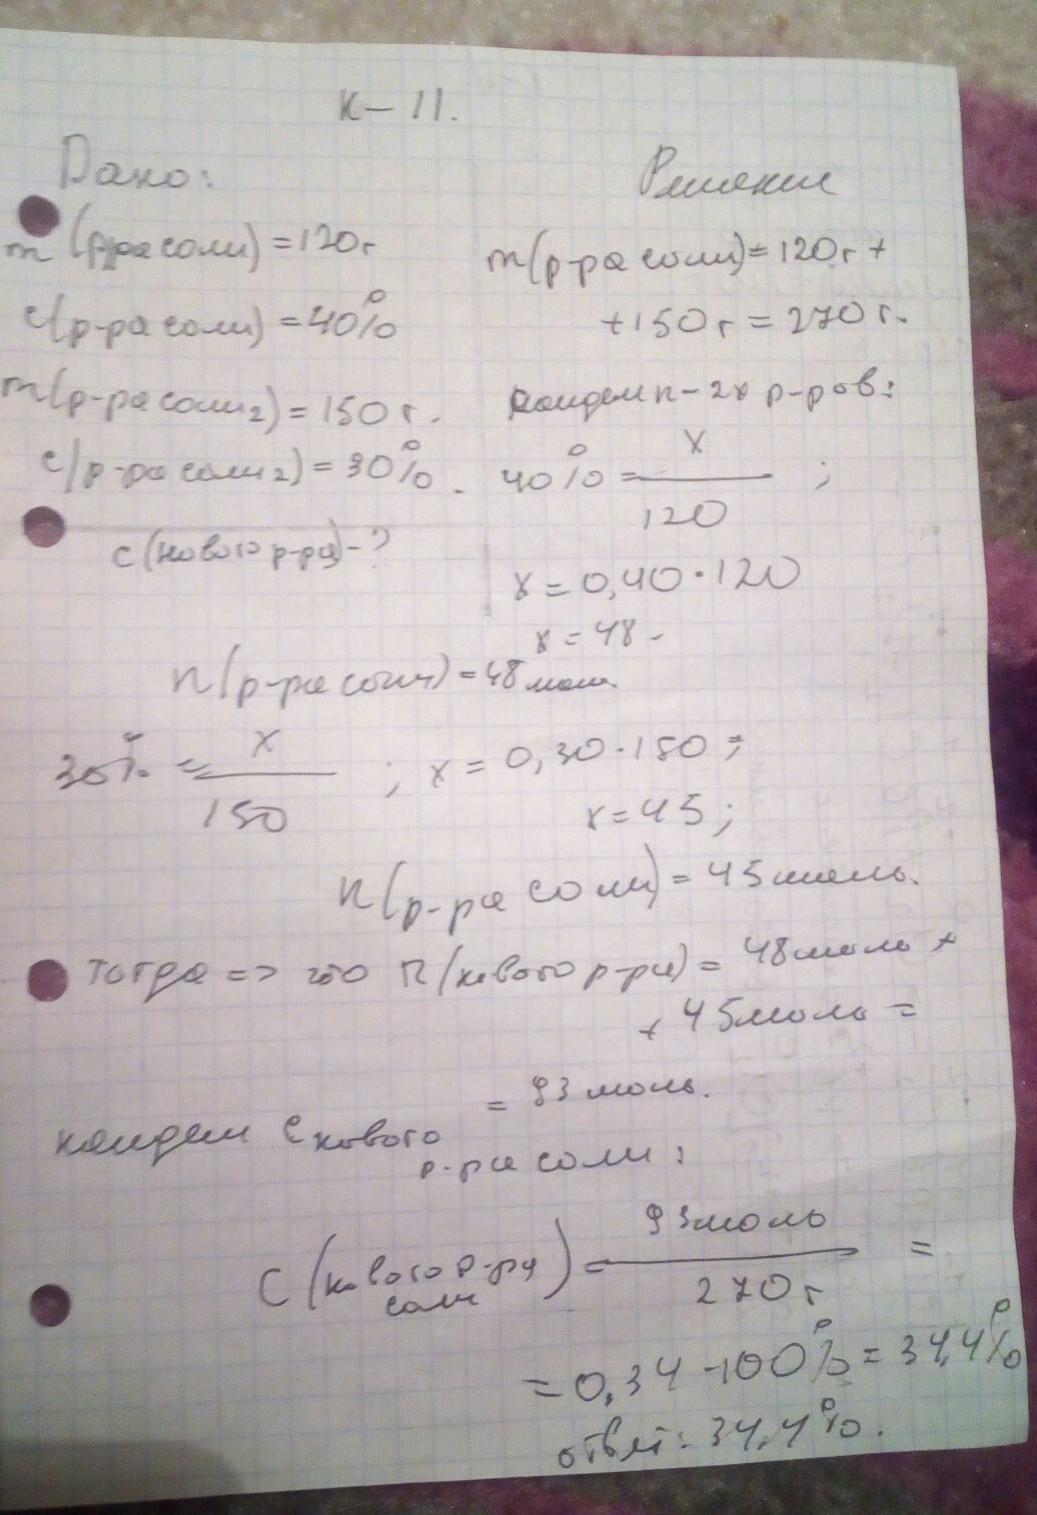 К – 11.
Дано:
Решение
m (р-ра соли) = 120 г
c (р-ра соли) = 40%
m (р-ра соли 2) = 150 г.
c (р-ра соли 2) = 30%.
c (нового р-ра) - ?
m (р-ра соли) = 120 г +
+ 150 г = 270 г.
найдем n – 2х р-ров:
40% = x / 120 ;
x = 0,40 · 120
x = 48 .
n (р-ра соли) = 48 моль.
30% = x / 150 ; x = 0,30 · 150 ;
x = 45 ;
n (р-ра соли) = 45 моль.
тогда => это n (нового р-ра) = 48 моль +
+ 45 моль =
= 93 моль.
найдем c нового
р-ра соли :
C (нового р-ра соли) = 93 моль / 270 г =
= 0,34 · 100% = 34,4%
ответ: 34,4%.